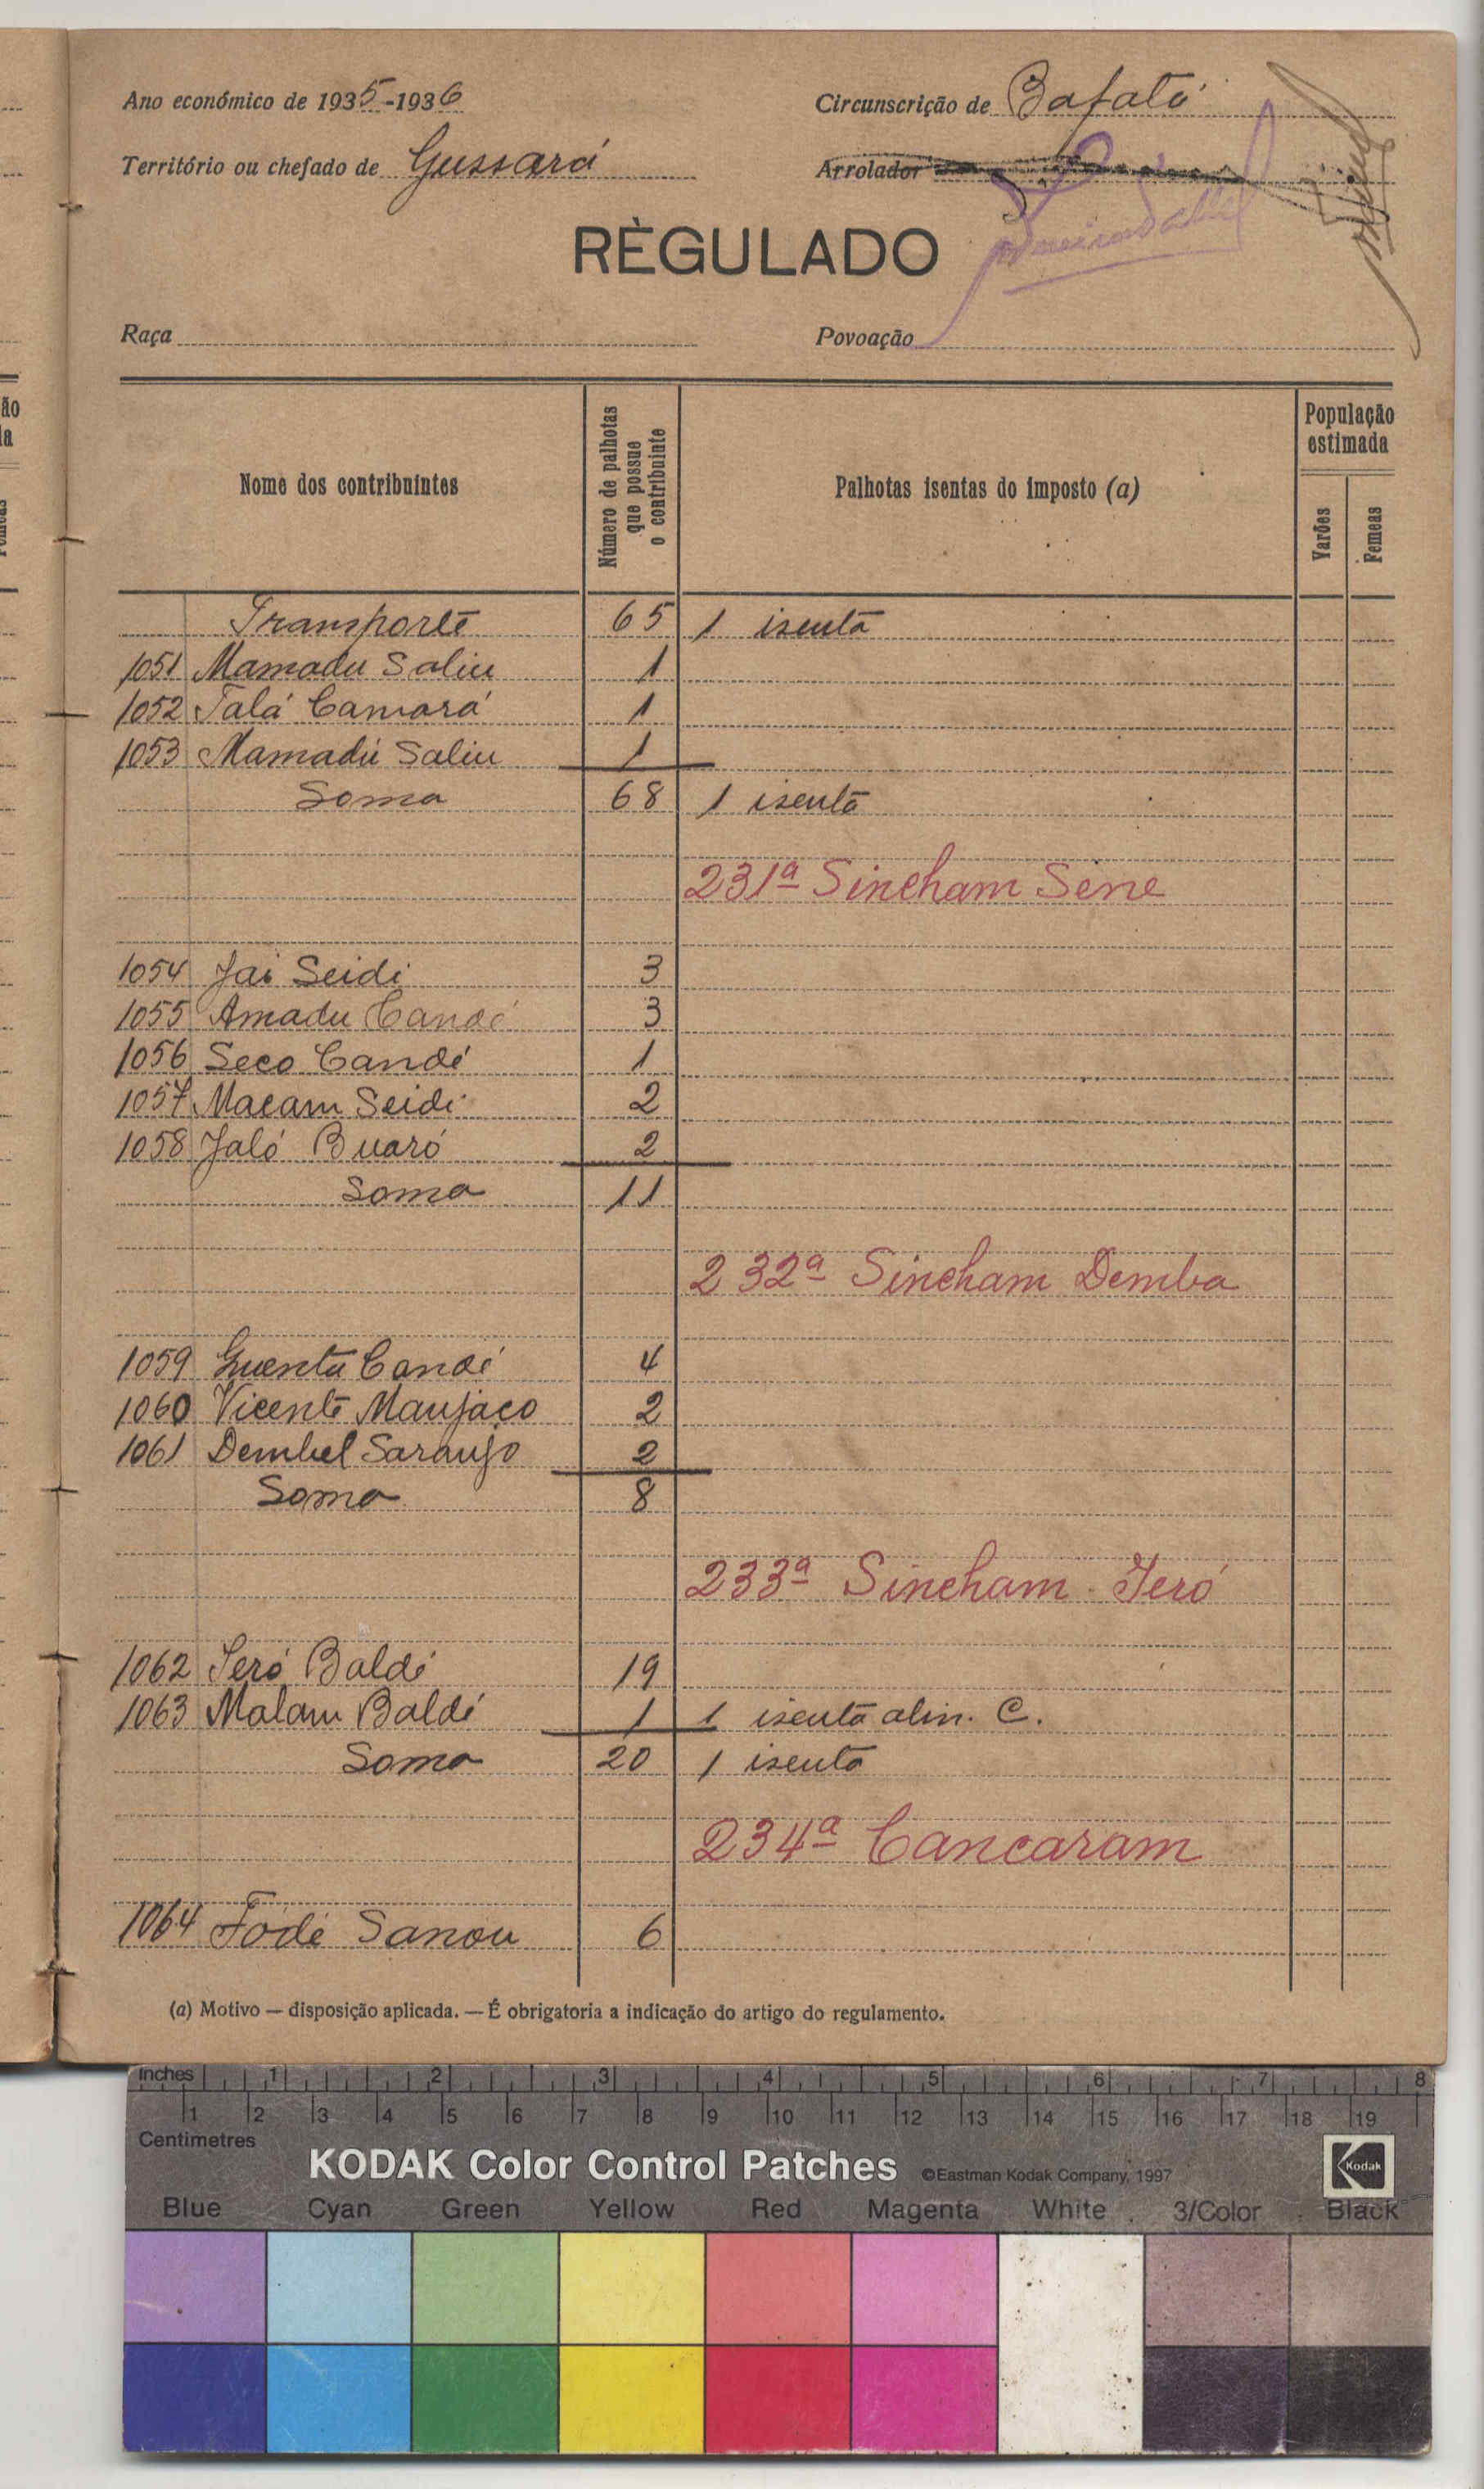 Ano económico de 1935-1936
Circunscrição de Bafatá
Território ou chefado de Gussará
Arrolador
RÈGULADO
Raça
Povoação
Nome dos contribuintes
Número de palhotas que possue o contribuinte
Palhotas isentas do imposto (a)
População estimada
Varões
Femeas
Transporte 65 1 isenta
1051 Mamadu Saliu 1
1052 Talá Camará 1
1053 Mamadú Saliu 1
Soma 68 1 isenta
231ª Sincham Sene
1054 Jai Seidi 3
1055 Amadu Candé 3
1056 Seco Candé 1
1057 Macam Seidi 2
1058 Jaló Buaró 2
Soma 11
232ª Sincham Demba
1059 Guenta Candé 4
1060 Vicente Manjaco 2
1061 Dembel Saranjo 2
Soma 8
233ª Sincham Ieró
1062 Ieró Baldé 19
1063 Malam Baldé 1 1 isenta alin. C.
Soma 20 1 isenta
234ª Cancaram
1064 Fodé Sanou 6
(a) Motivo — disposição aplicada. — É obrigatoria a indicação do artigo do regulamento.
Inches 1 2 3 4 5 6 7 8
1 2 3 4 5 6 7 8 9 10 11 12 13 14 15 16 17 18 19
Centimetres
KODAK Color Control Patches ©Eastman Kodak Company, 1997 Kodak
Blue Cyan Green Yellow Red Magenta White 3/Color Black